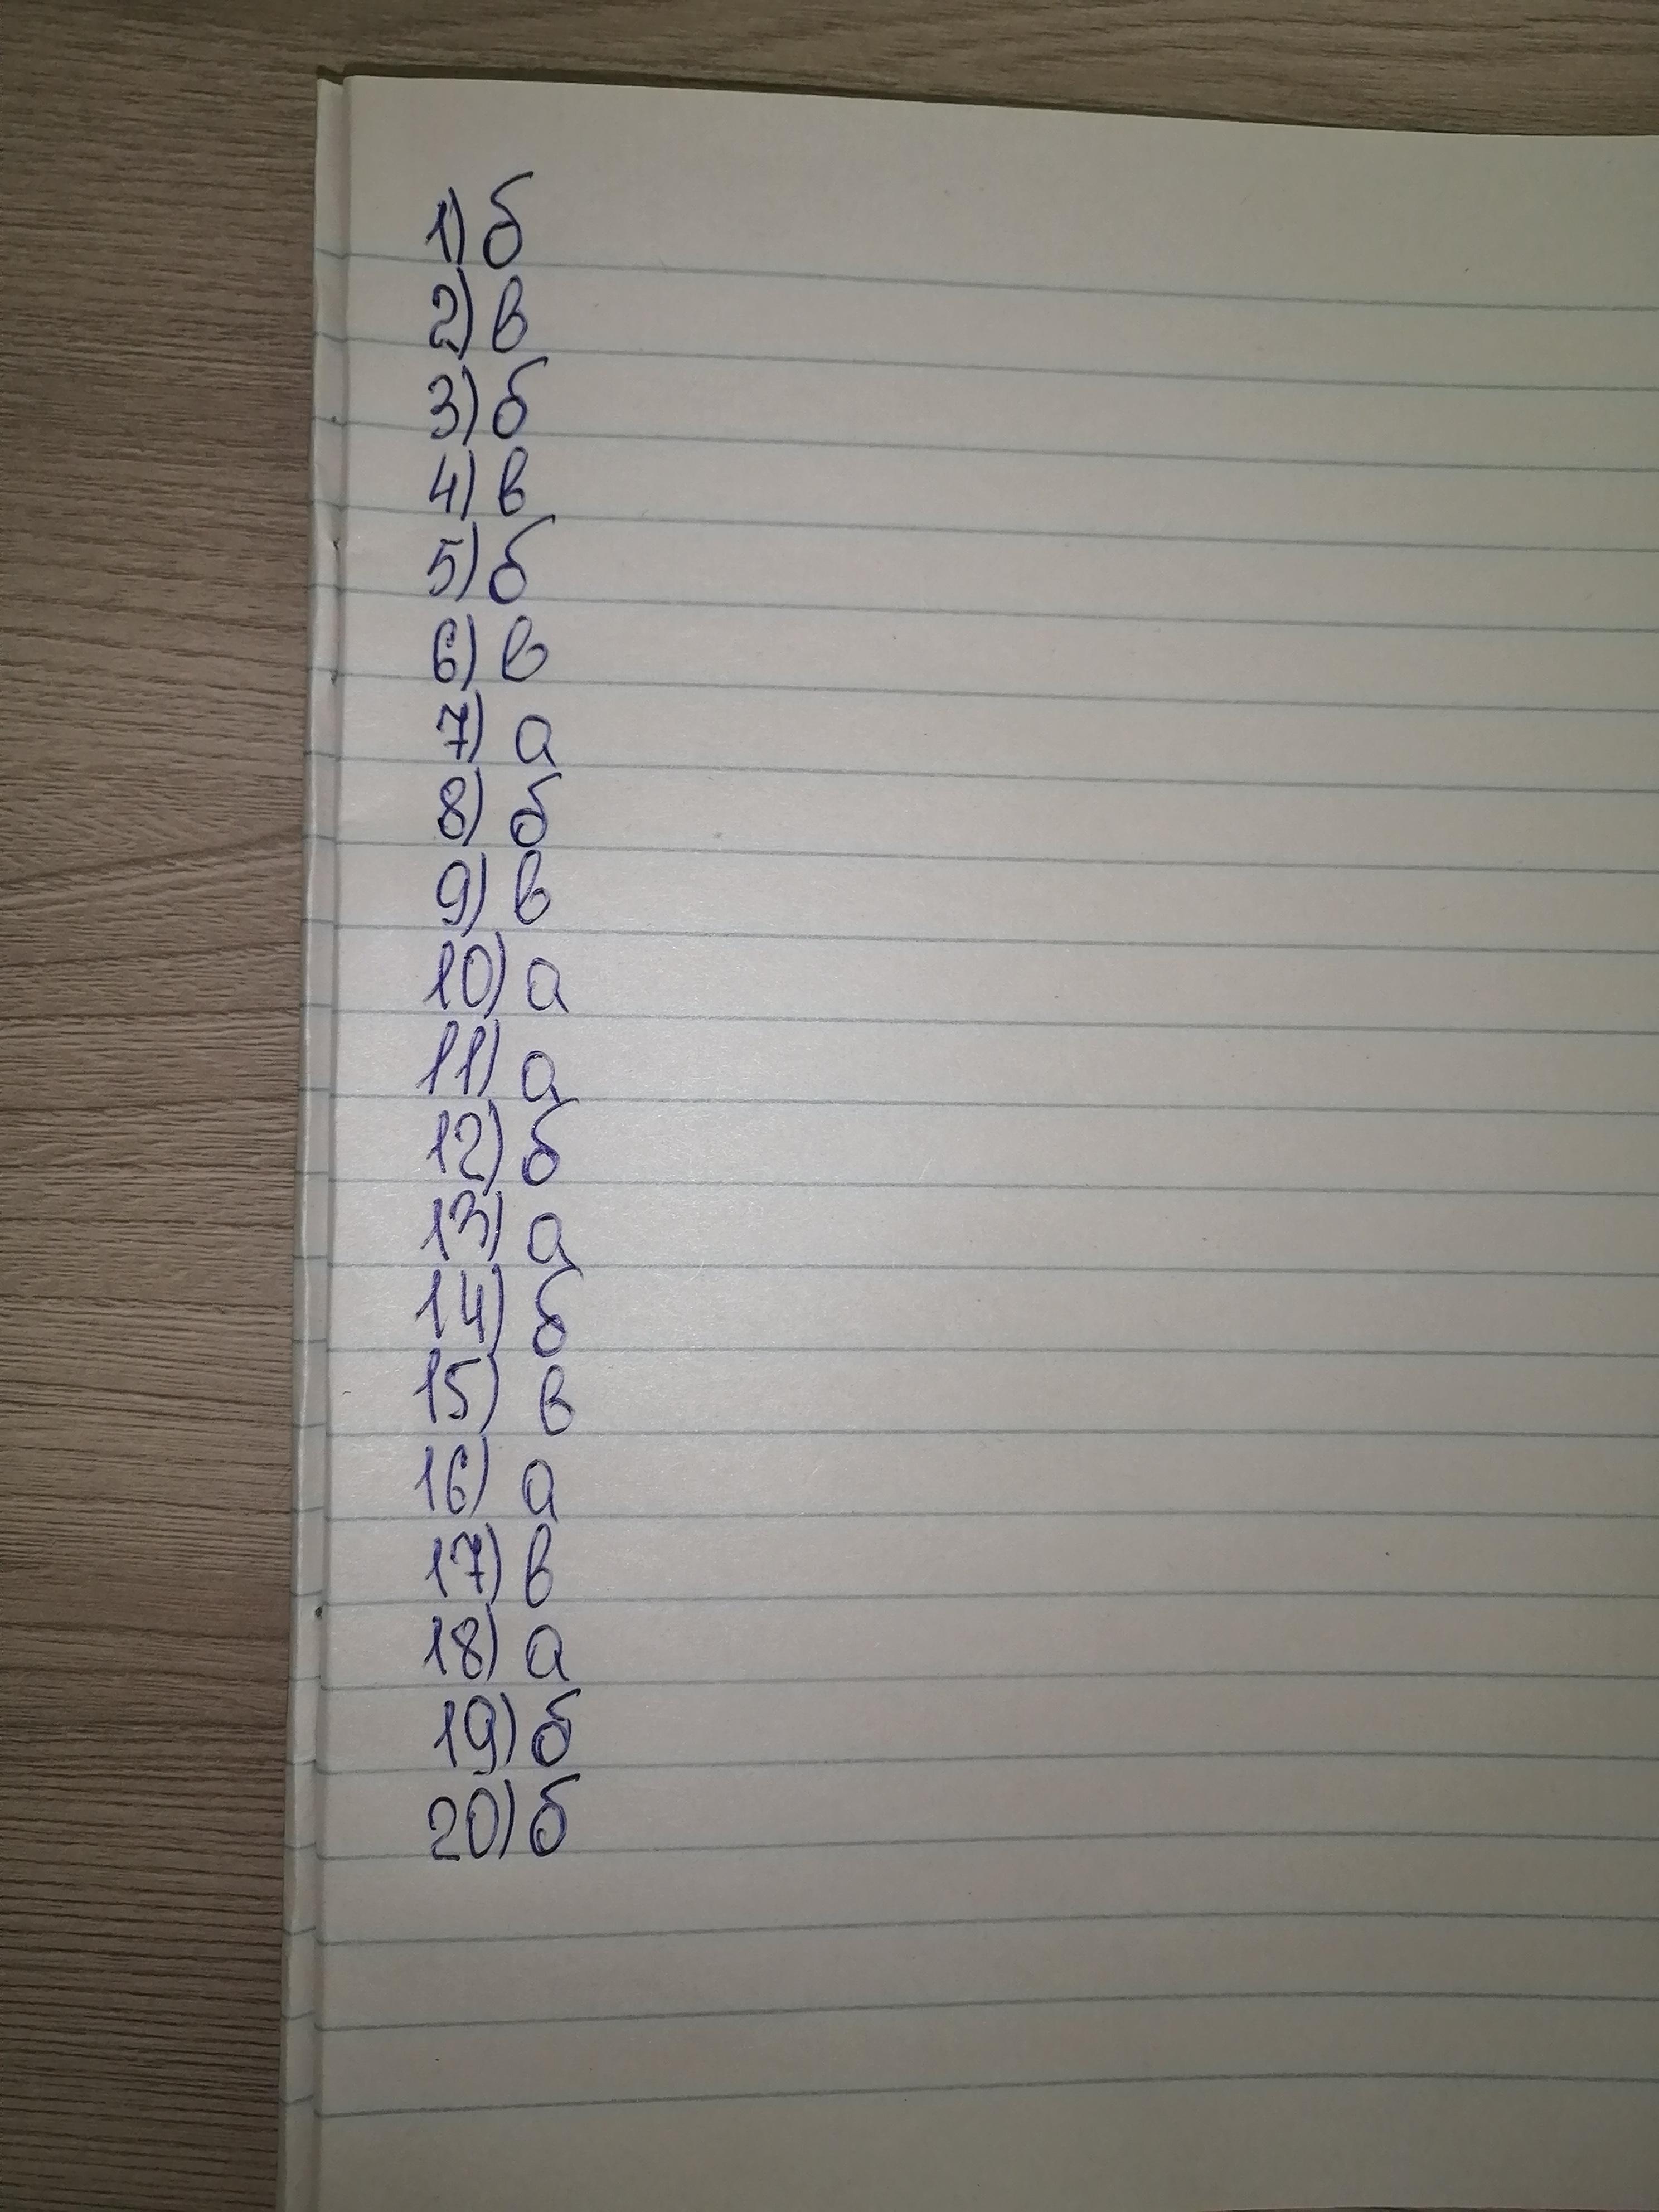 1) б
2) в
3) б
4) в
5) б
6) в
7) а
8) б
9) в
10) а
11) а
12) б
13) а
14) б
15) в
16) а
17) в
18) а
19) б
20) б